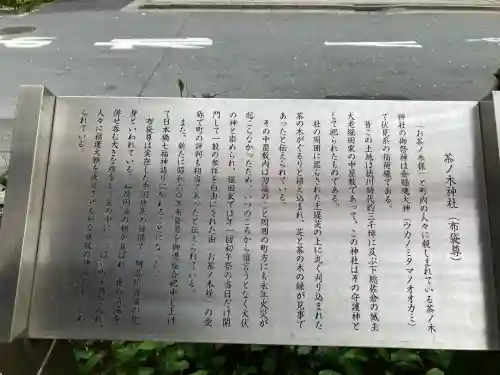 茶ノ木神社(布袋尊)
「お茶ノ木様」と町内の人々に親しまれている茶ノ木
神社の御祭神は倉稲魂大神(ウカノミタマノオオカミ)
で伏見系の稲荷様である。
昔この土地は徳川時代約三千坪に及ぶ下総佐倉の城主
大老堀田家の中屋敷であって、この神社はその守護神と
して祀られたものである。
社の周囲に巡らされた土堤芝の上に丸く刈り込まれた
茶の木がぐるりと植え込まれ、芝と茶の木の緑が見事で
あったと伝えられている。
その中屋敷内は勿論のこと周囲の町方にも永年火災が
起こらなかったため、いつのころからか誰言うとなく火伏
の神と崇められ、堀田家では年一回初午祭の当日だけ開
門して一般の参拝を自由にされた由「お茶ノ木様」の愛
称で町の評判も相当であったと伝えられている。
また、新たに昭和六十年布袋尊を御遷座合祀申し上げ
て日本橋七福神詣りに加わることになった。
布袋尊は実在した中国唐代の禅僧で、
身といわれている。
併せ呑む大きな
人々に福運大願を成就させる
られている。